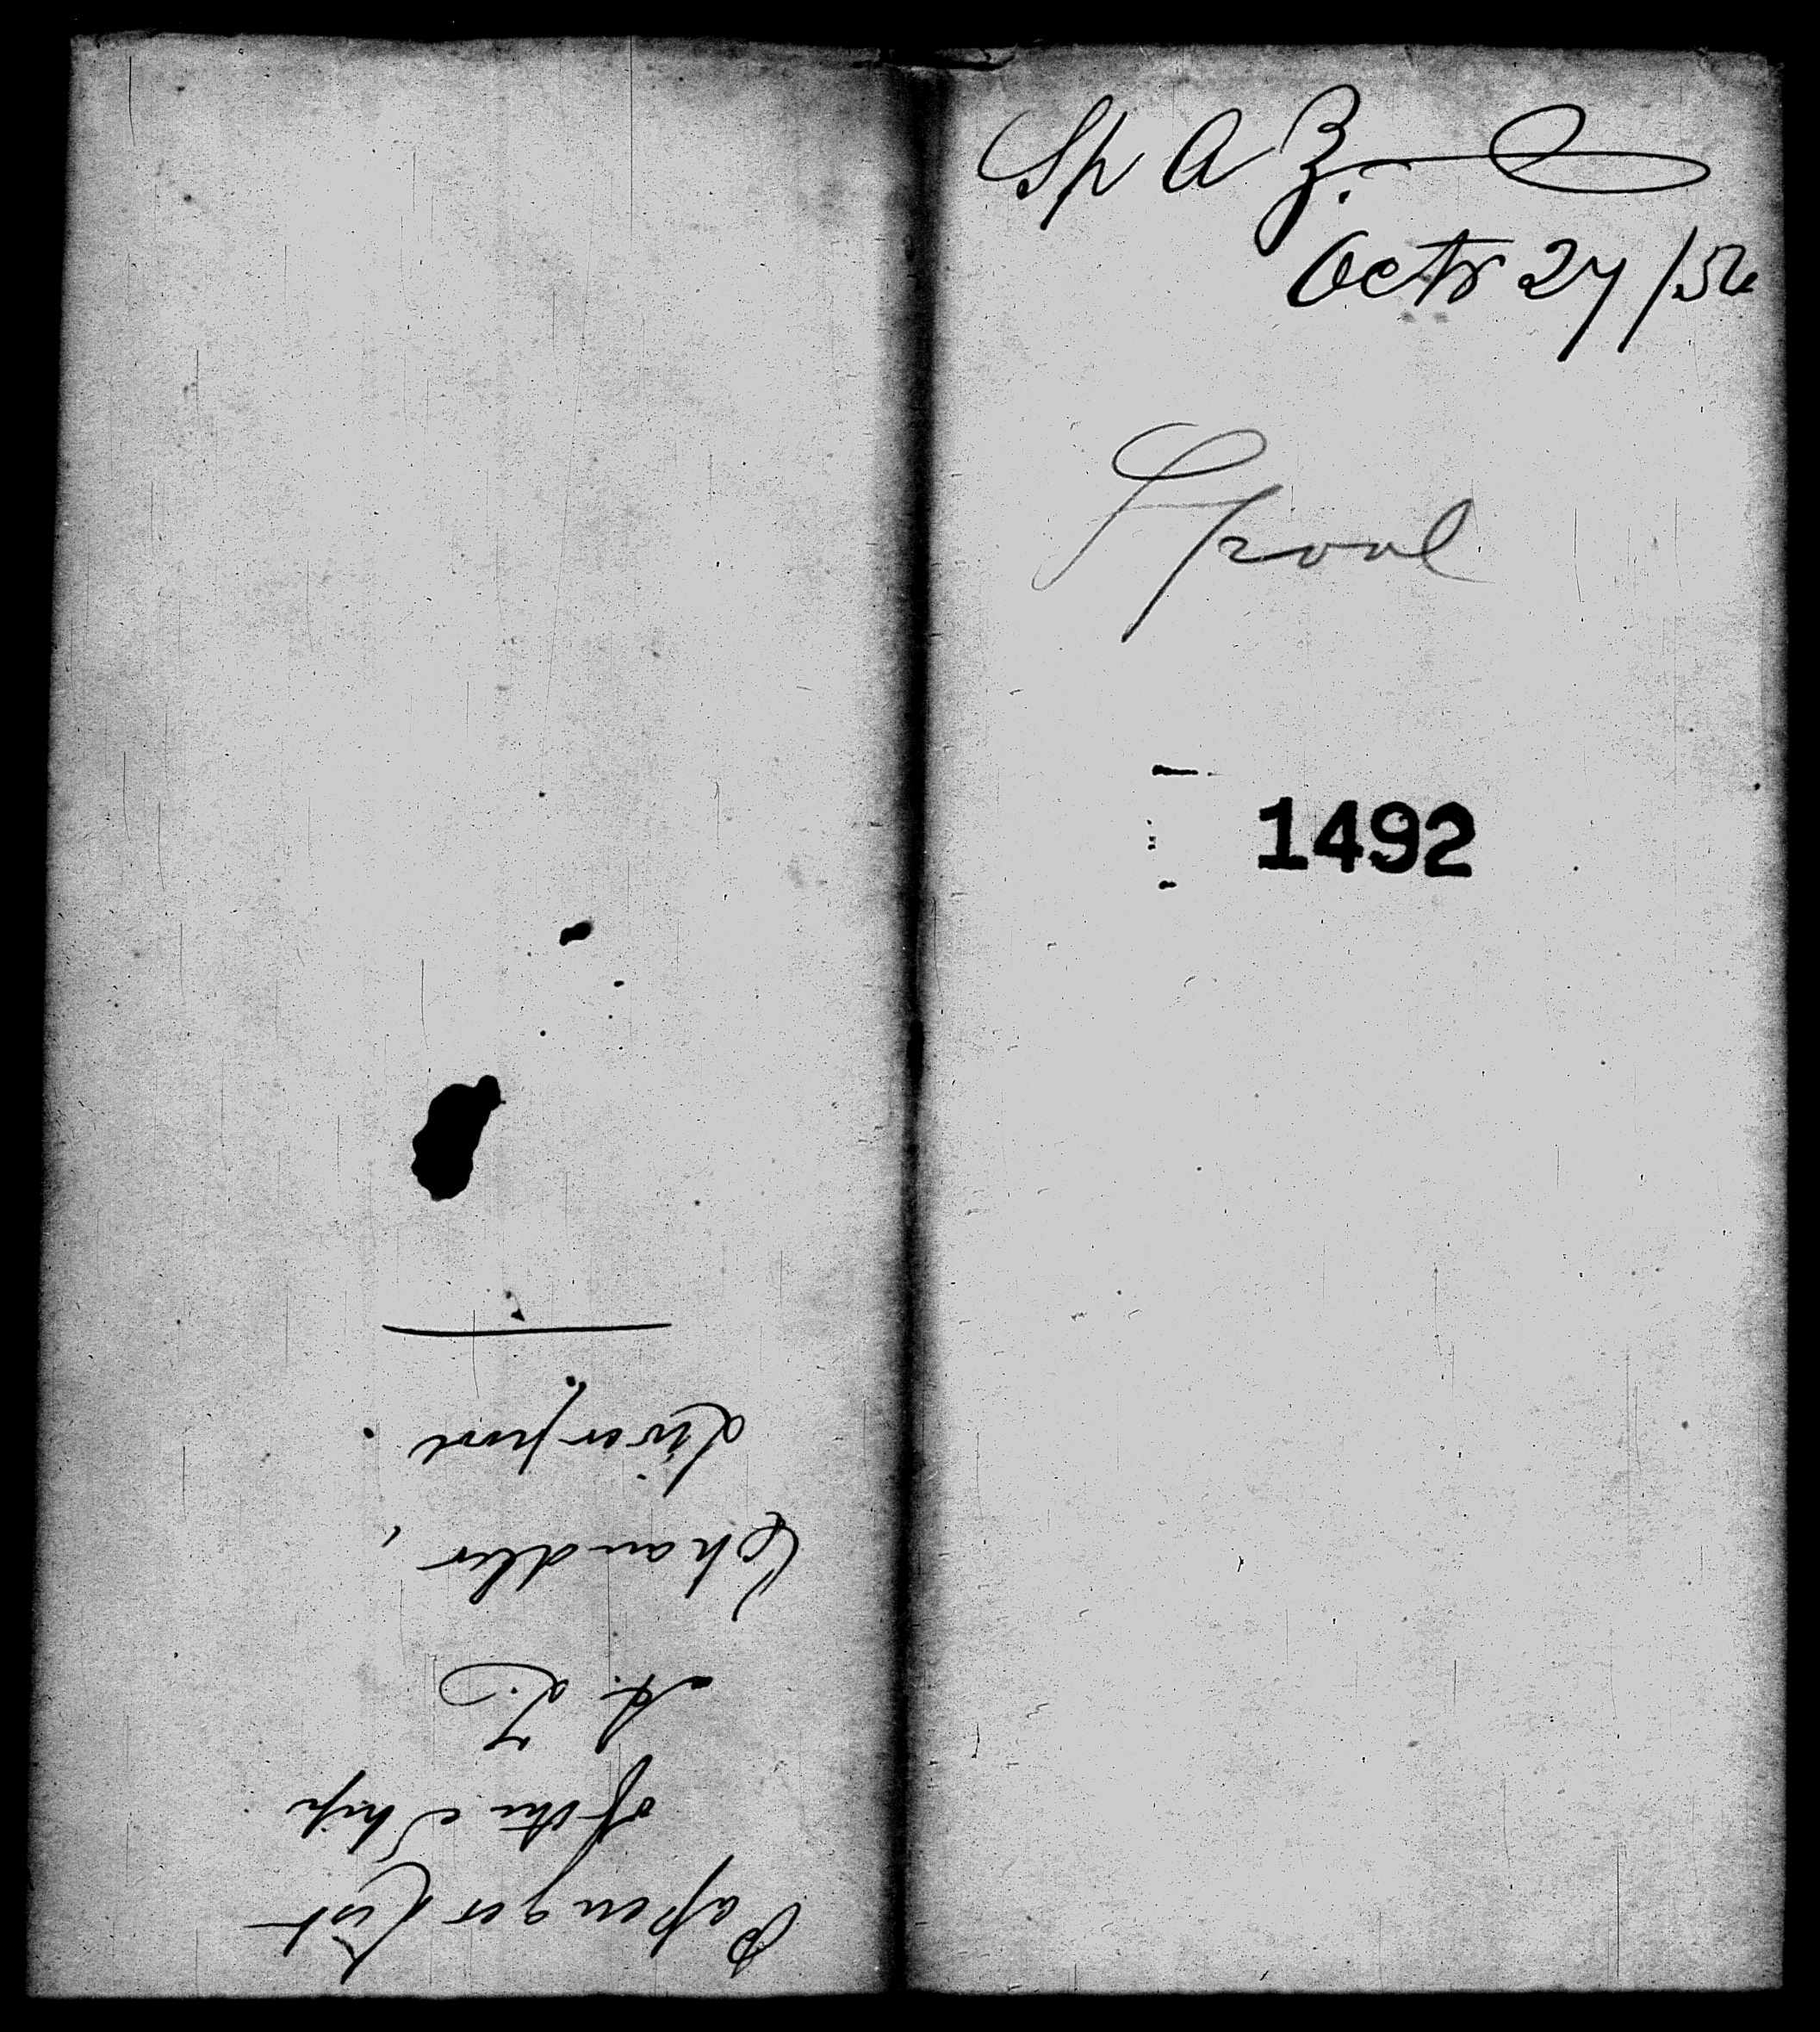 Passenger List
of the Ship
A. Z.
Chandler,
Liverpool
Sp A Z.
Octr 27 /54
Lpool
1492